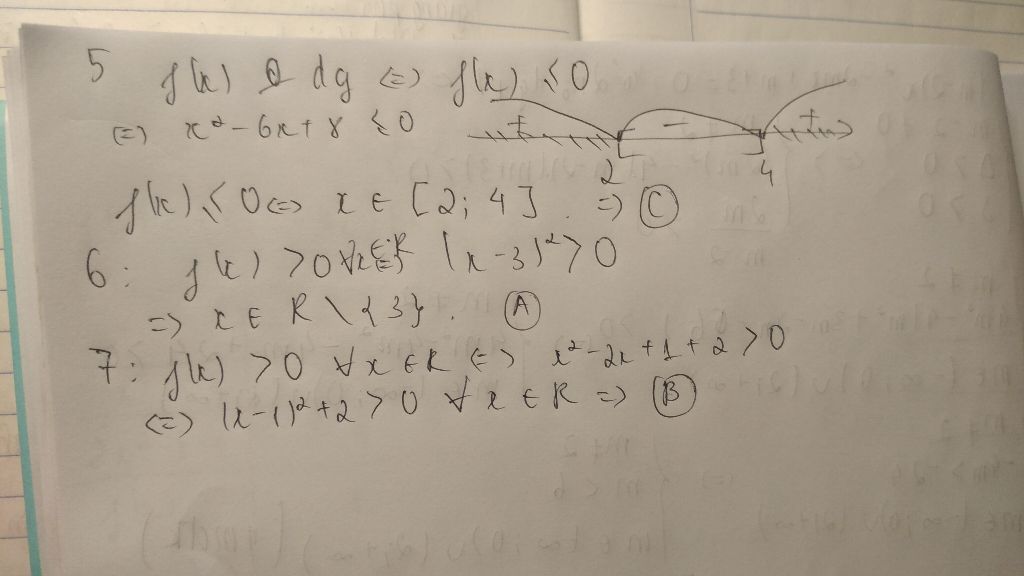 5 f(x) 0 dg <=> f(x) ≤ 0
<=> x² - 6x + 8 ≤ 0
+ - +
2 4
f(x) ≤ 0 <=> x ∈ [2; 4] . => C
6: f(x) > 0 ∀x∈R (x-3)² > 0
=> x ∈ R \ {3} . A
7: f(x) > 0 ∀x ∈ R <=> x² - 2x + 1 + 2 > 0
<=> (x-1)² + 2 > 0 ∀ x ∈ R => B